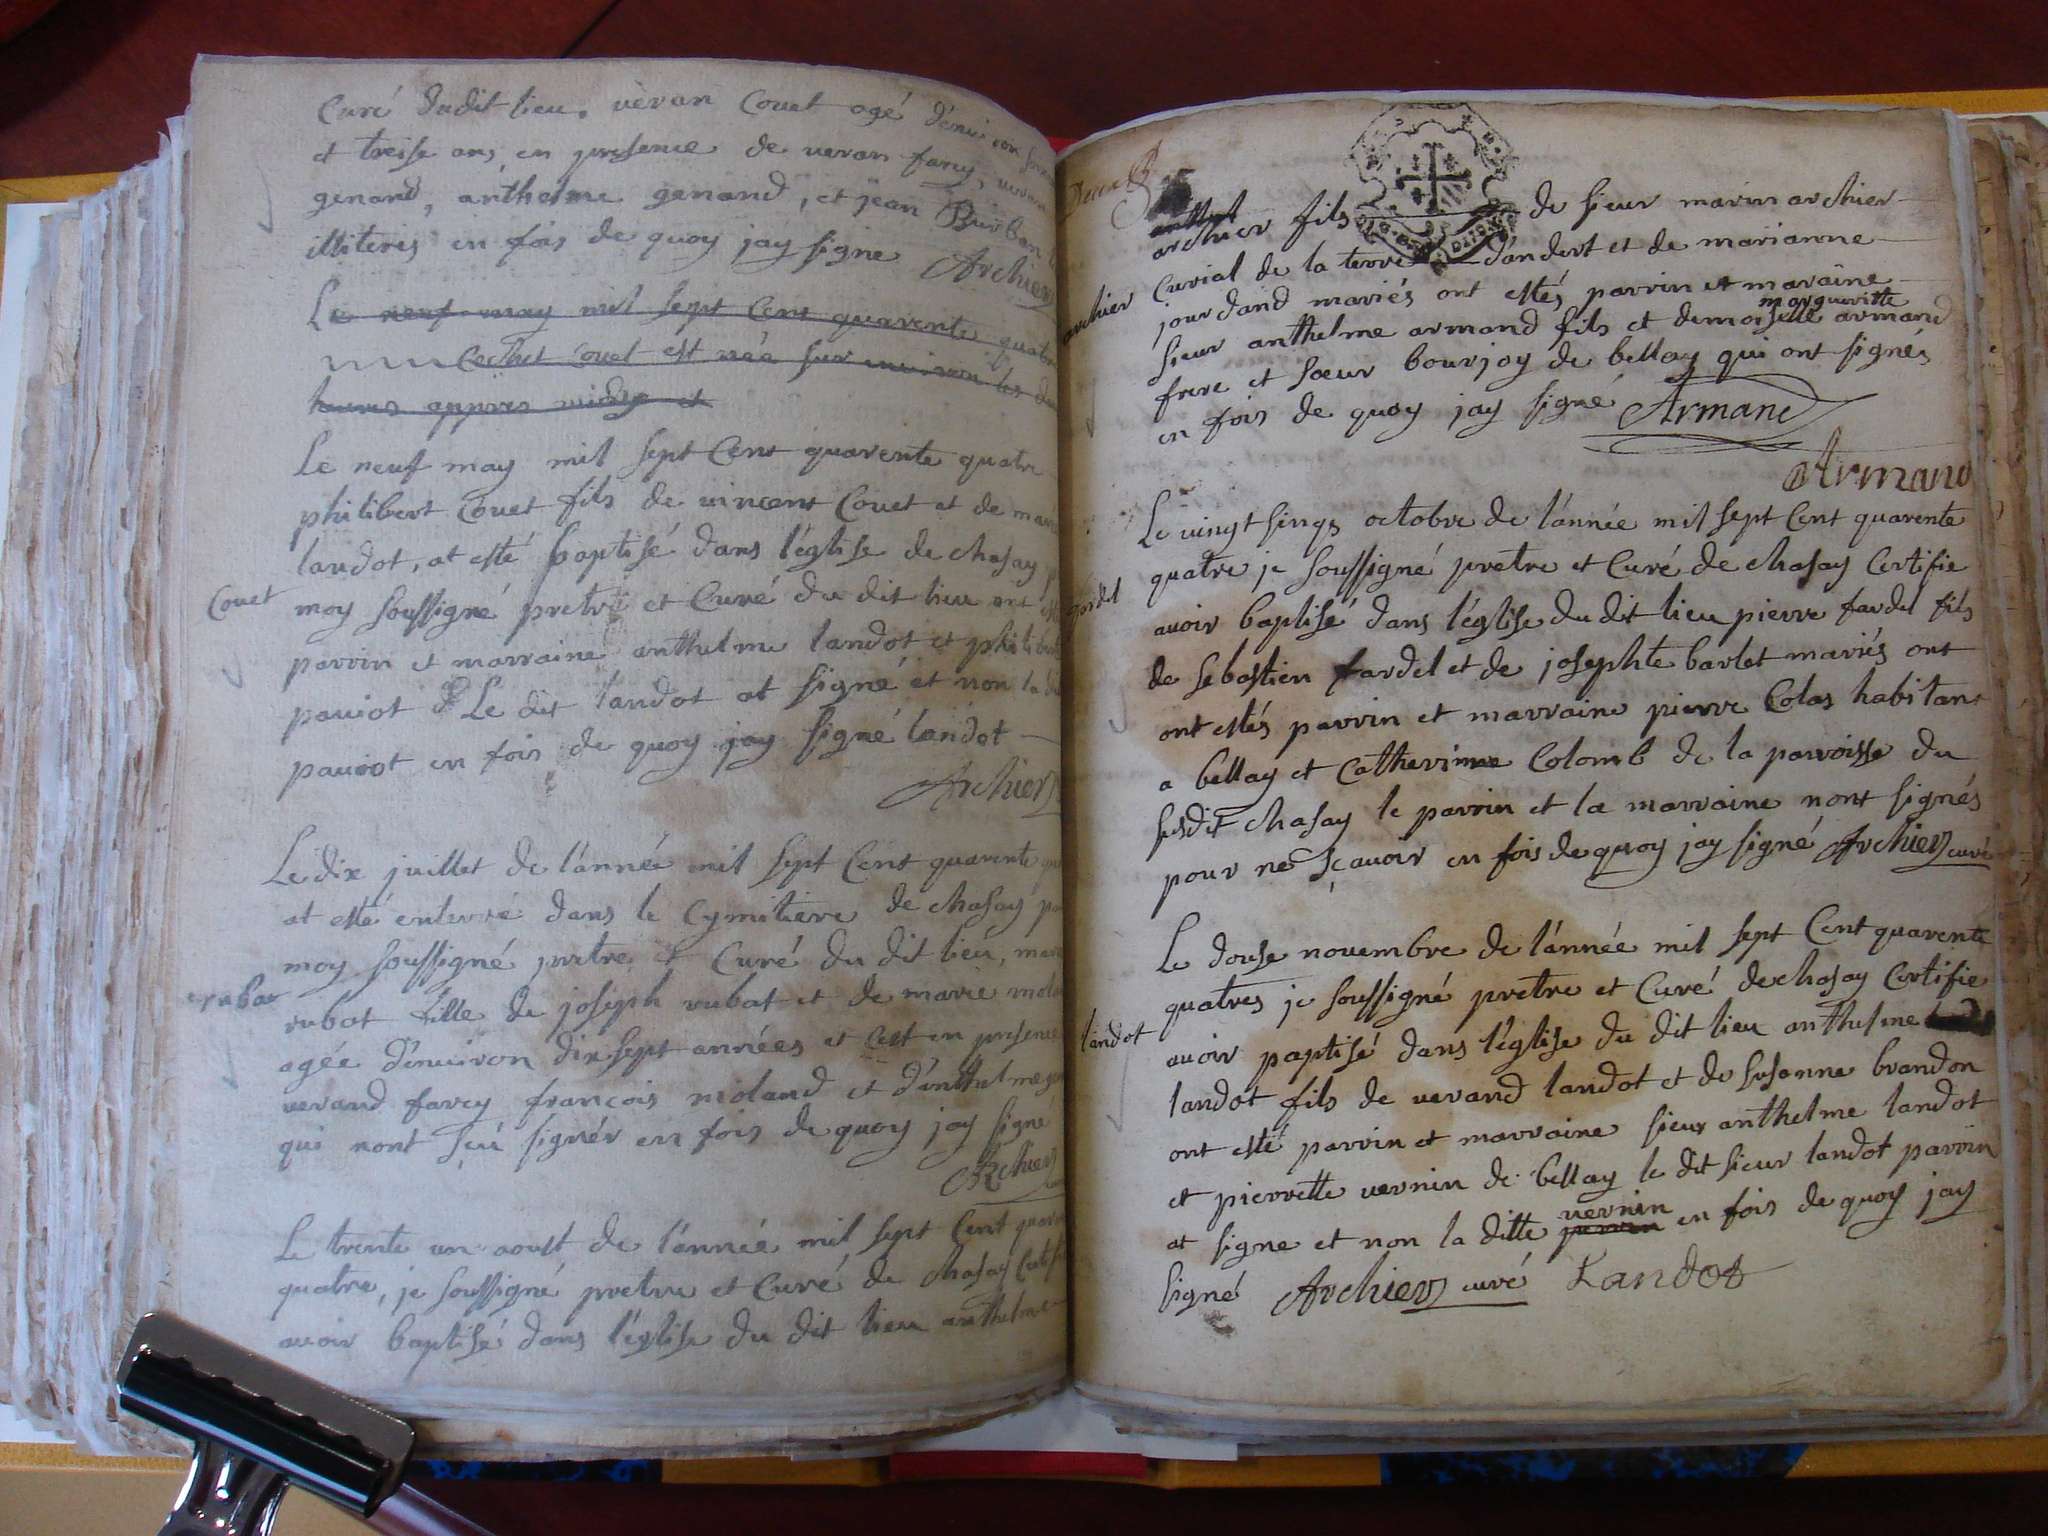 Curé dudit lieu. veran Couet agé d'environ
et treise ans en presence de veran farcy, veran
genand, anthelme genand, et jean Burban
illiteres en fois de quoy jay signe Archier
Le neuf may mil sept Cent quarente quatre
est née sur environ les
heures appres midy et
Le neuf may mil sept Cent quarente quatre
philibert Couet fils de vincent Couet et de
landot, at esté baptisé dans l'église de chasay
Couet
moy soussigné pretre et Curé du dit lieu ont
parrin et marraine anthelme landot et
pauiot Le dit landot at signé et non la
pauiot en fois de quoy jay signé landot
Archier
Le dix juillet de l'année mil sept Cent quarente
at esté enterré dans le Cymitiere de chasay
moy soussigné pretre et Curé du dit lieu,
rubat
rubat fille de joseph rubat et de marie
agée d'environ dix sept années et cest en presence
verand farcy françois moland et d'anthelme
qui nont sçeu signér en fois de quoy jay signé
Archier
Le trente un aoust de l'année mil sept Cent
quatre, je soussigné pretre et Curé de chasay
avoir baptisé dans l'église du dit lieu anthelme
archier fils de sieur marin archier
Curial de la terre d'andert et de marianne
archier
jourdand mariés ont estés parrin et maraine
margueritte
sieur anthelme armand fils et demoiselle armand
frere et sœur bourjoy de bellay qui ont signés
en fois de quoy jay signé Armand
Armand
Le vingt sinqs octobre de l'année mil sept Cent quarente
quatre je soussigné pretre et Curé de chasay Certifie
fardel
avoir baptisé dans l'église du dit lieu pierre fardel fils
de sebastien fardel et de josephte barlet mariés ont
ont estés parrin et marraine pierre Colas habitant
a bellay et Catherinne Colomb de la parroisse du
susdit chasay le parrin et la marraine nont signés
pour ne sçavoir en fois de quoy jay signé Archier curé
Le douse novembre de l'année mil sept Cent quarente
quatres je soussigné pretre et Curé de chasay Certifie
landot
avoir baptisé dans l'église du dit lieu anthelme
landot fils de verand landot et de susanne brandon
ont esté parrin et marraine sieur anthelme landot
et pierrette vernin de bellay le dit sieur landot parrin
vernin
at signe et non la ditte en fois de quoy jay
signé Archier curé Landot